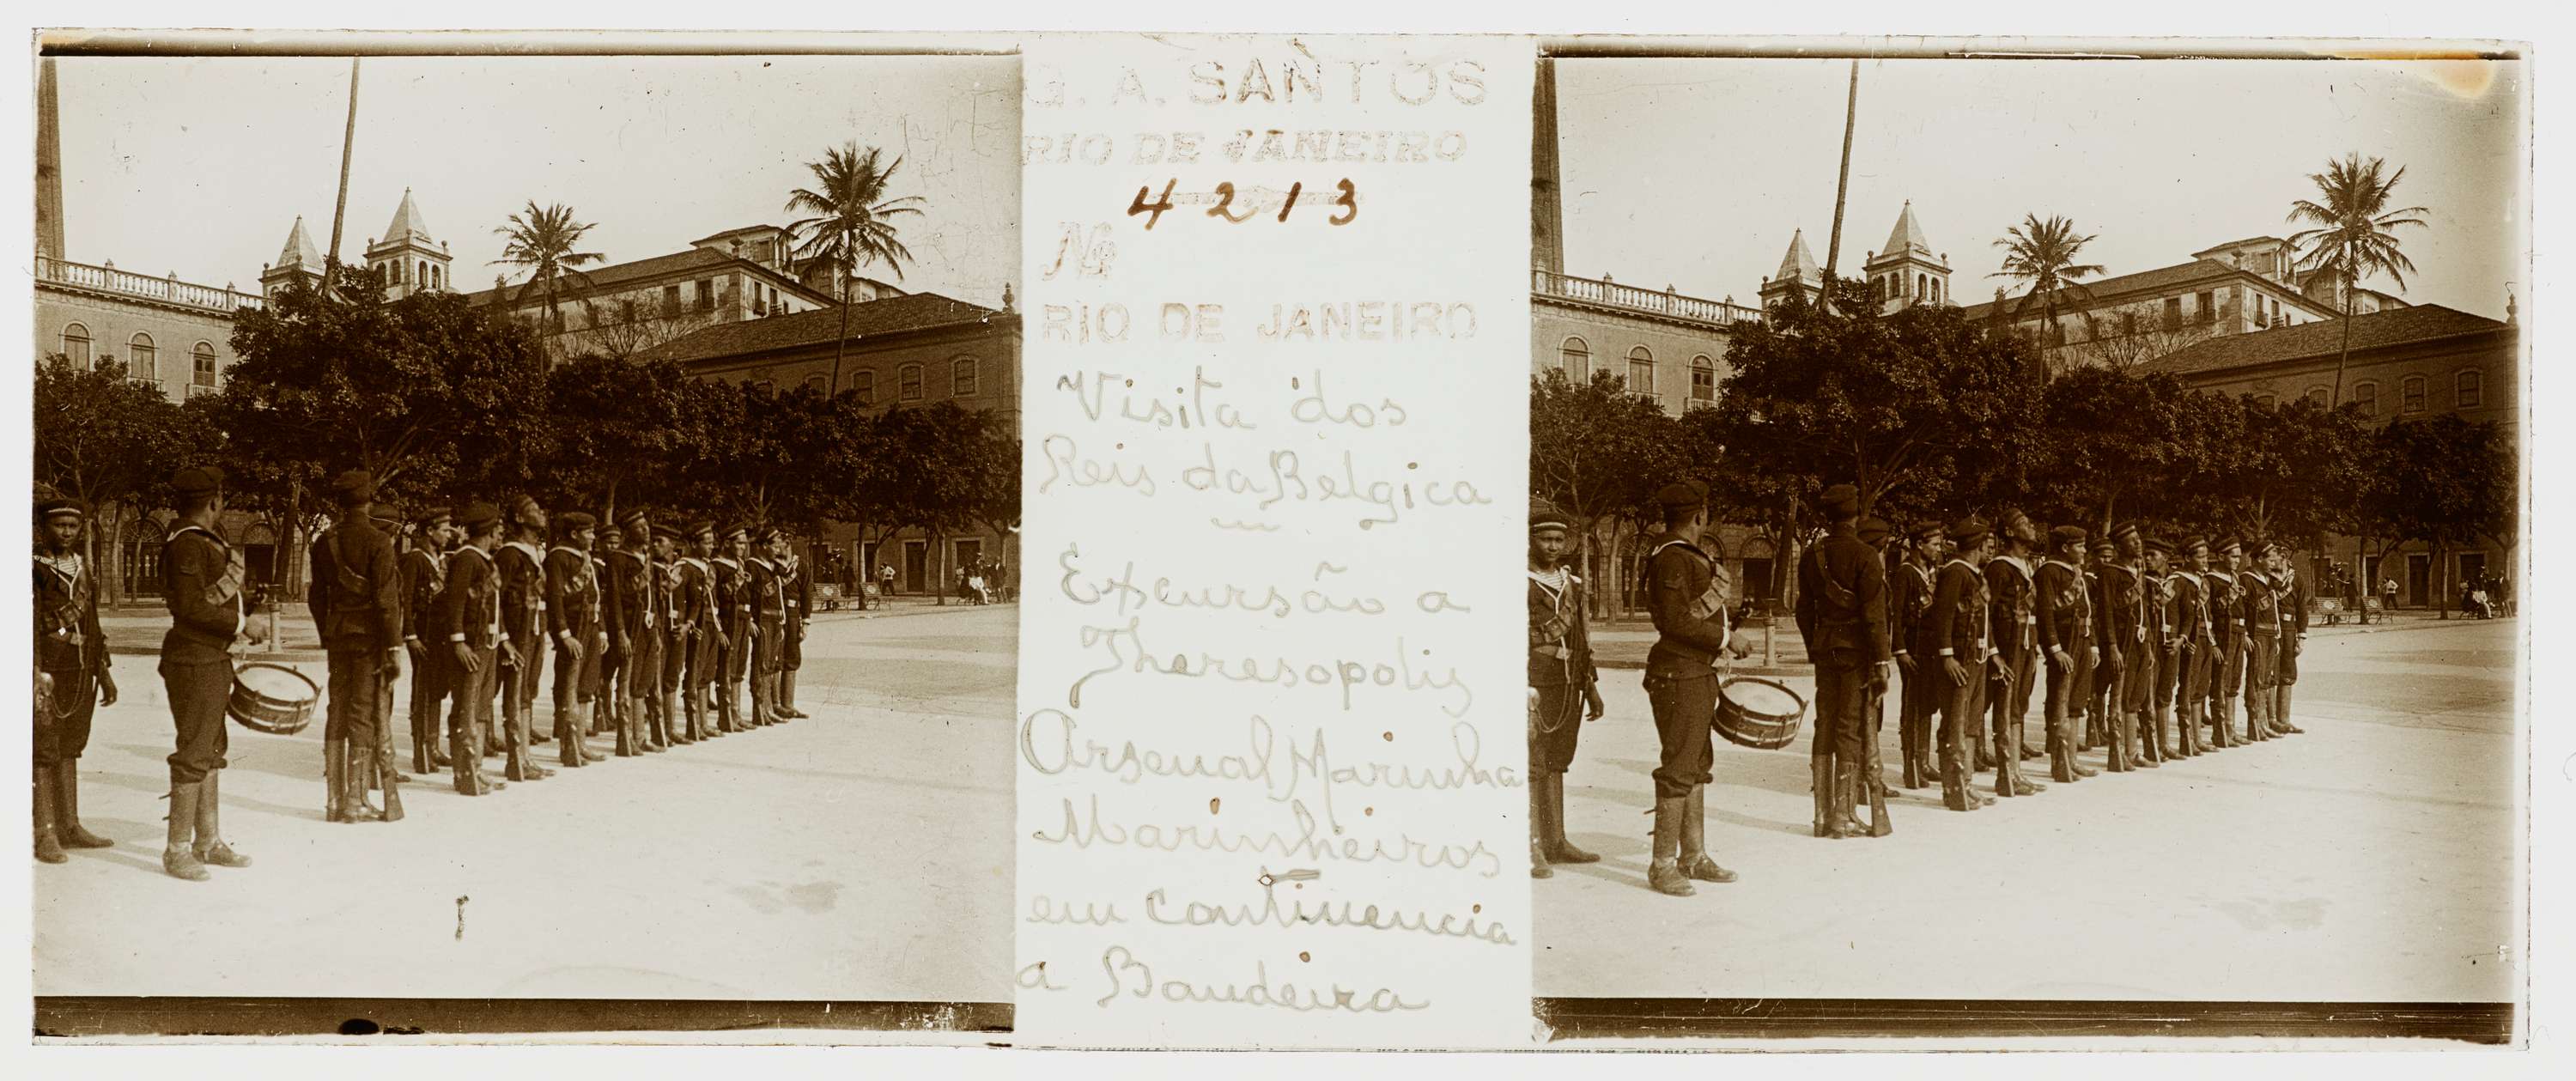 G. A. SANTOS
RIO DE JANEIRO
4213
No
RIO DE JANEIRO
Visita dos
Reis da Belgica
Excursão a
Theresopolis
Arsenal Marinha
Marinheiros
em continencia
a Bandeira